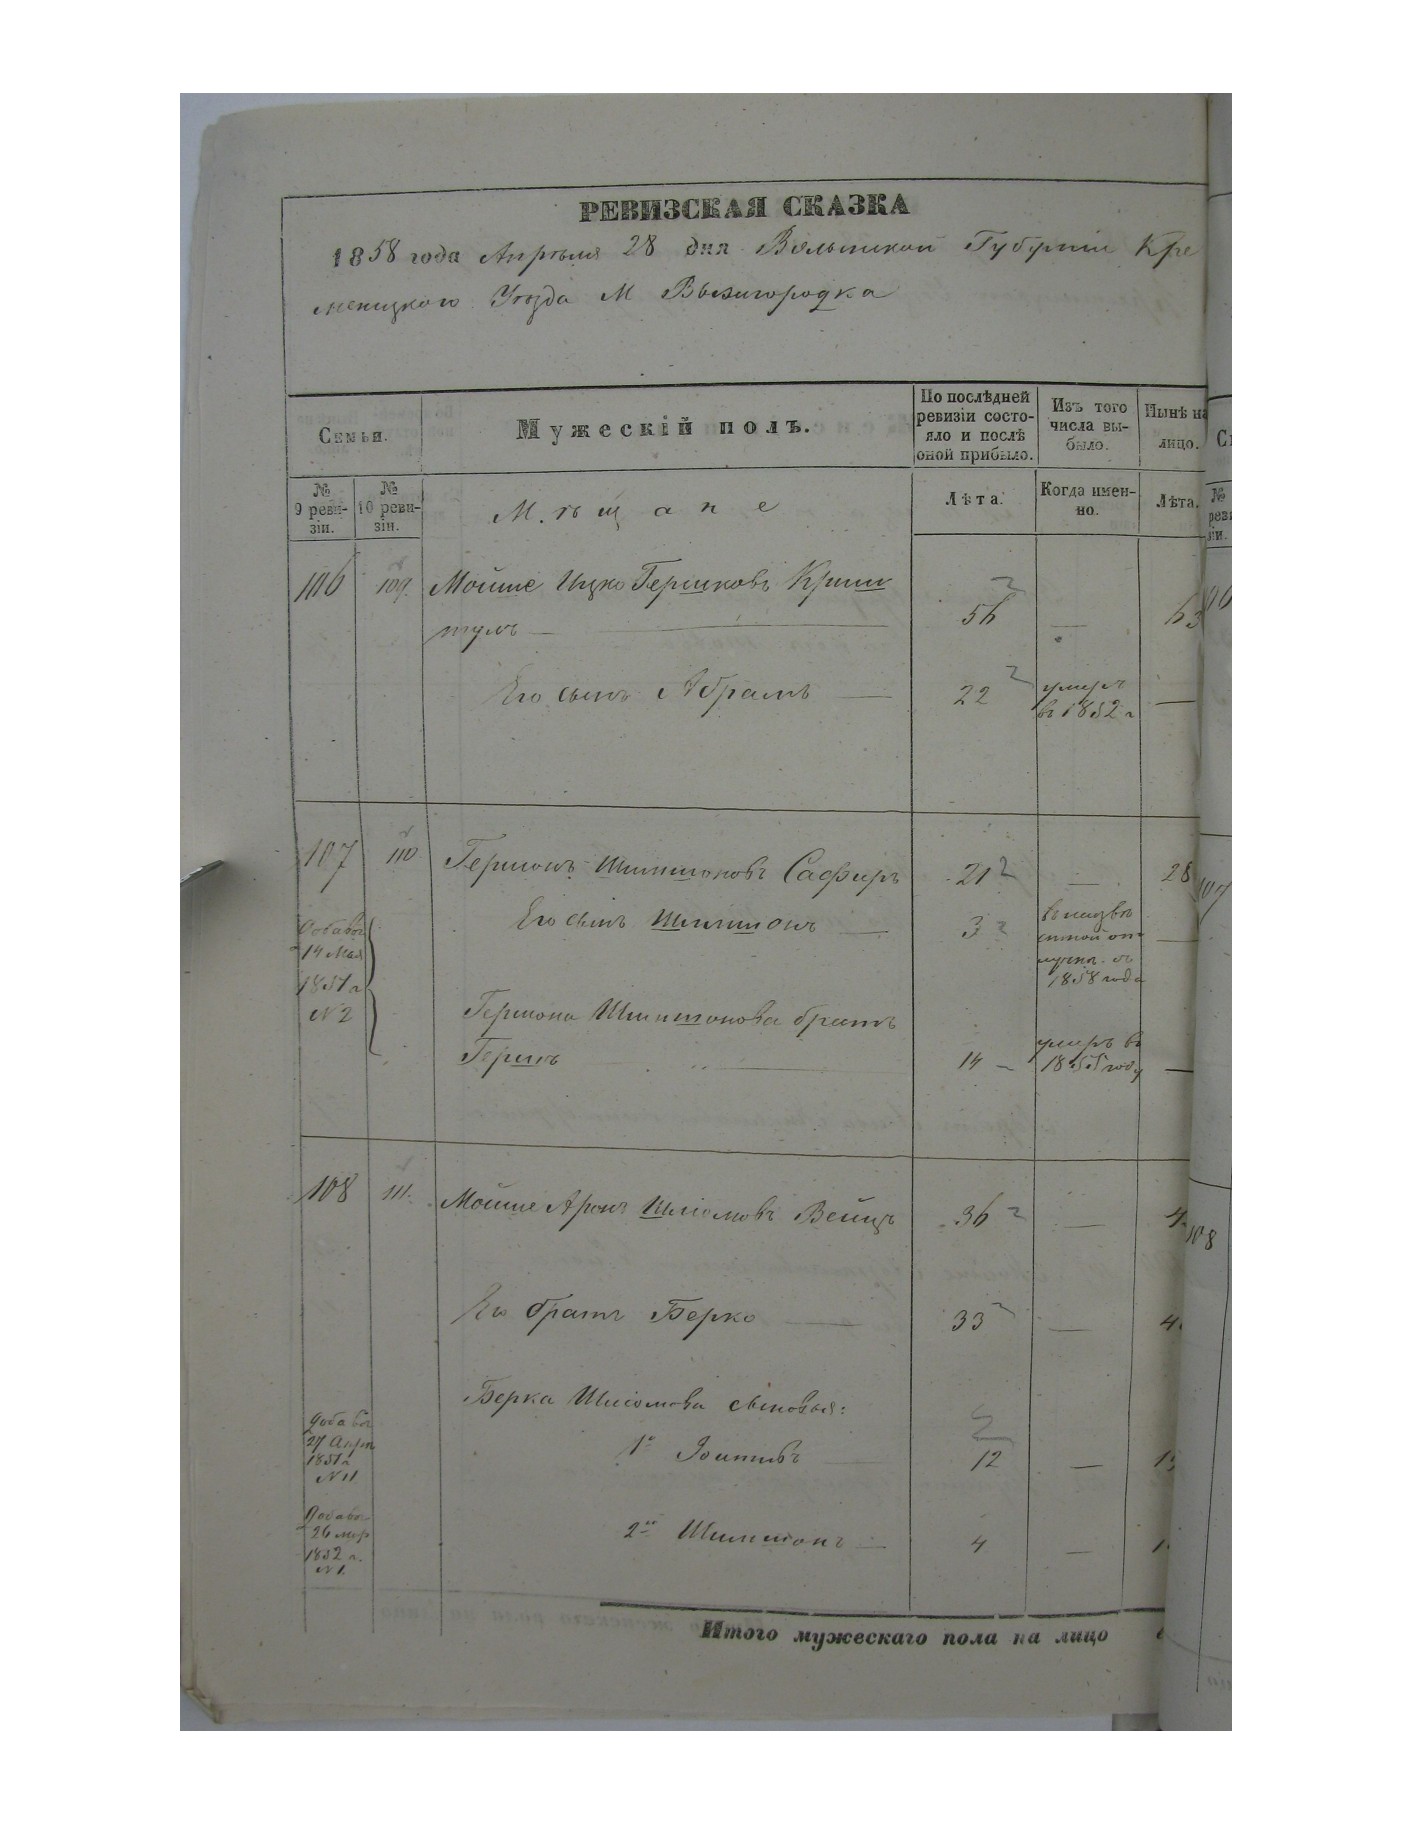 РЕВИЗСКАЯ СКАЗКА
1858 года Апрѣля 28 дня Волынской Губерніи Кре
менецкого Уѣзда М Вышгородка
Семьи.
Мужескій полъ.
По послѣдней ревизіи состояло и послѣ оной прибыло.
Изъ того числа выбыло.
Нынѣ на лицо.
№ 9 ревизіи.
№ 10 ревизіи.
Мѣщане
Лѣта.
Когда именно.
Лѣта.
106 109. Мойше Ицко Гершковъ Криш
тулъ — 56 — 63
Его сынъ Абрамъ — 22 умеръ
въ 1852 г —
107 110 Гершонъ Шимшоновъ Сафиръ 21 — 28
Его сынъ Шимшонъ — 3
1858 года
Добавоч
14 Мая
1851 г
N 2
Гершона Шимшонова братъ
Гершъ 14 умеръ въ
1855 году —
108 111. Мойше Аронъ Шлiомовъ Вейцъ 36 —
Его братъ Берко — 33 —
Берка Шлiомова сыновья:
Добавоч
27 Апрѣ
1851 г
N 11
1й 12 —
Добавоч
26
1852 г.
N 1.
2й Шимшонъ — 4 —
Итого мужескаго пола на лицо